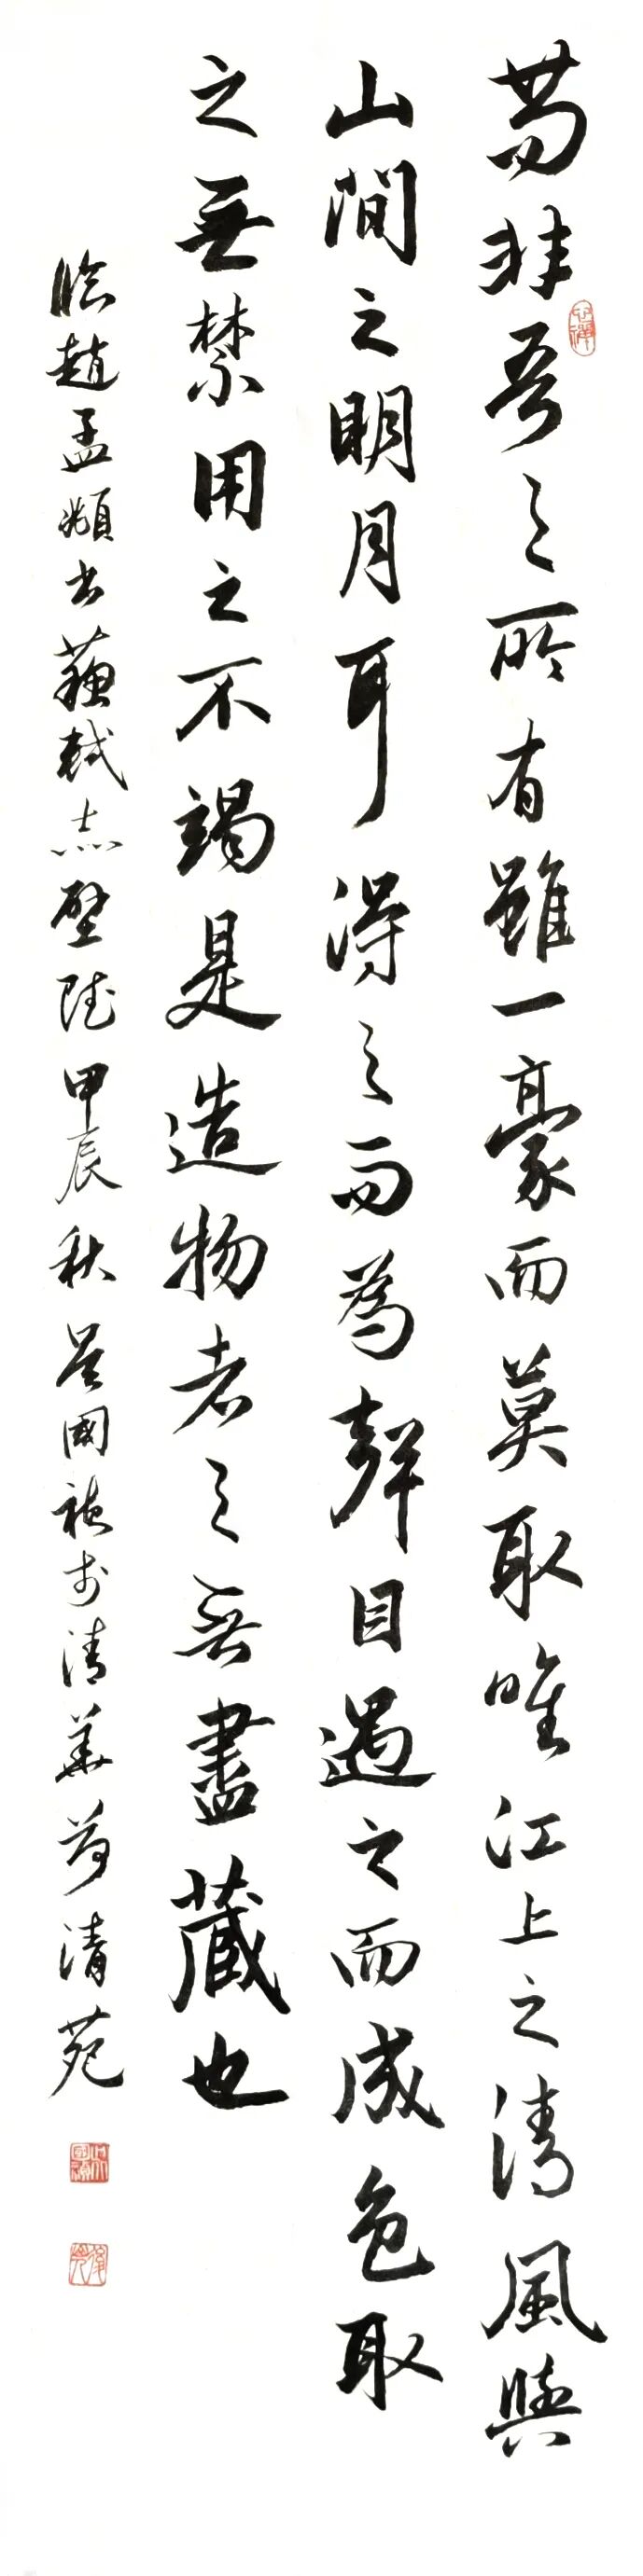 苟非吾之所有雖一豪而莫取唯江上之清風與
山間之明月耳得之而為聲目遇之而成色取
之無禁用之不竭是造物者之無盡藏也
臨趙孟頫書蘇軾赤壁陸甲辰秋吳國禎於清華荷清苑